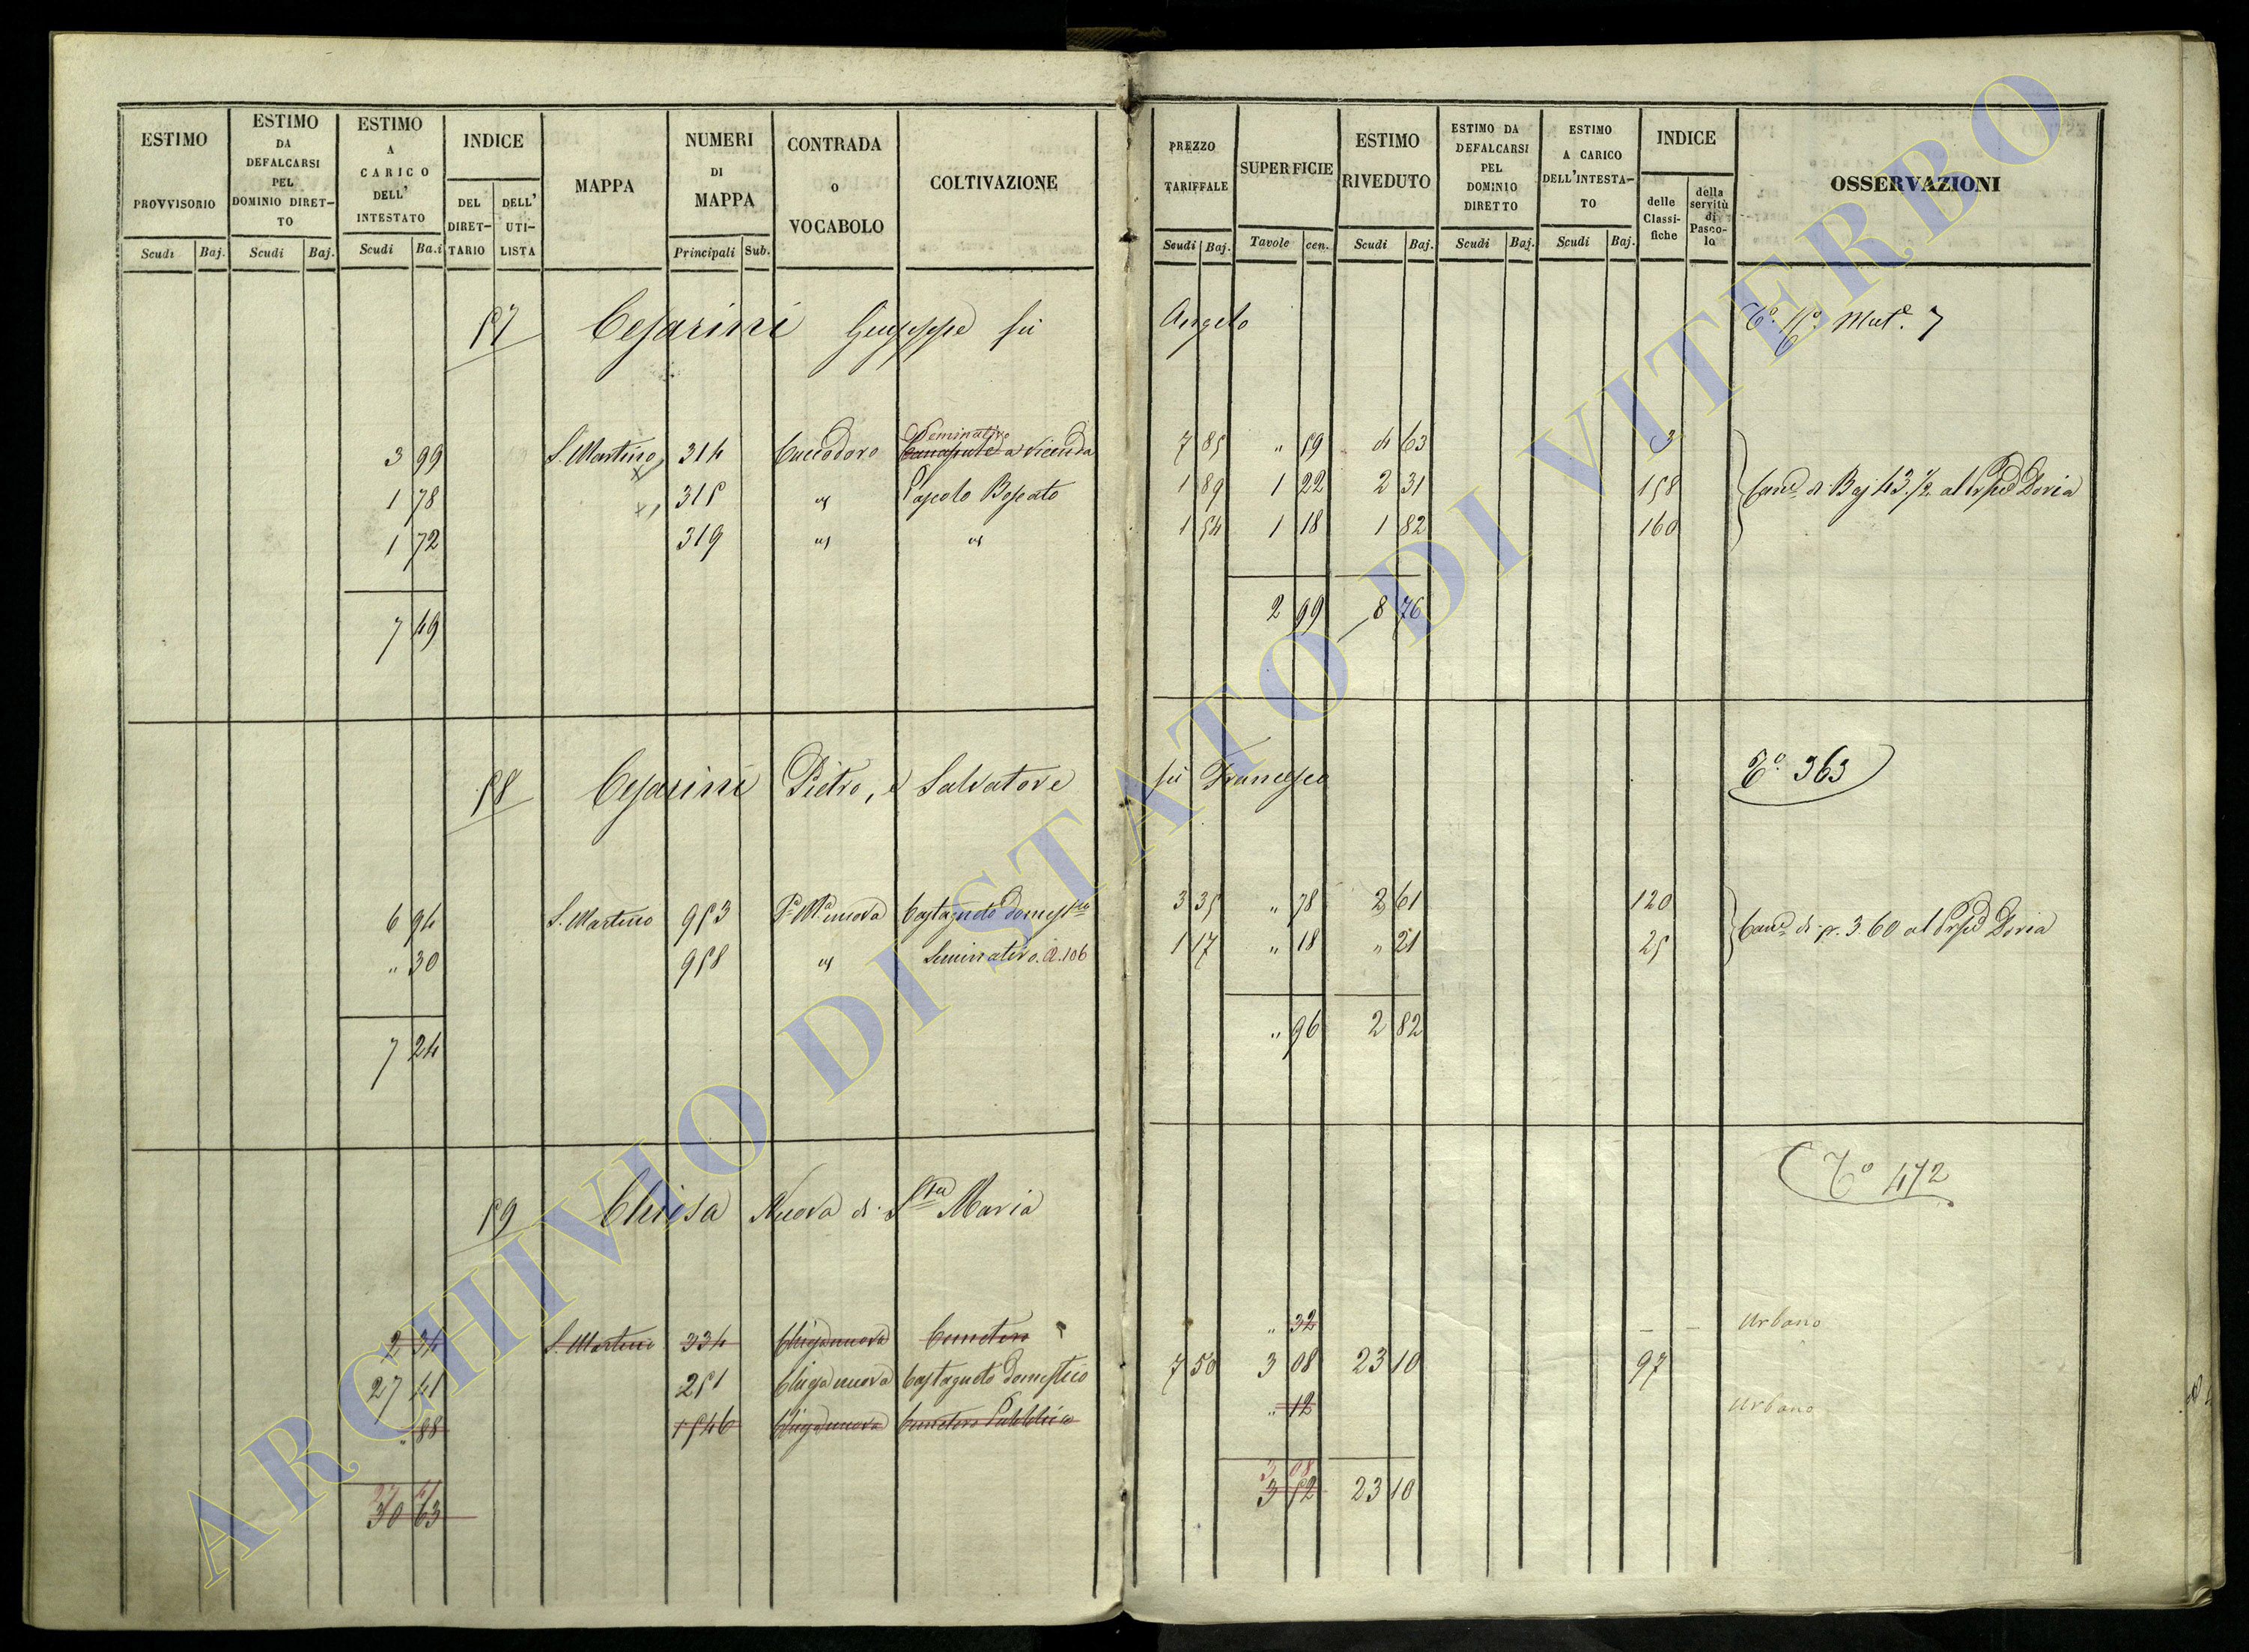 ESTIMO PROVVISORIO | ESTIMO DA DEFALCARSI PEL DOMINIO DIRET-TO | ESTIMO A CARICO DELL' INTESTATO | INDICE | MAPPA | NUMERI DI MAPPA | CONTRADA O VOCABOLO | COLTIVAZIONE | PREZZO TARIFFALE | SUPERFICIE | ESTIMO RIVEDUTO | ESTIMO DA DEFALCARSI PEL DOMINIO DIRETTO | ESTIMO A CARICO DELL'INTESTA-TO | INDICE | OSSERVAZIONI
DEL DIRET-TARIO | DELL' UTI-LISTA | delle Classi-fiche | della servitù di Pasco-lo
Scudi | Baj. | Scudi | Baj. | Scudi | Ba.i | Principali | Sub. | Scudi | Baj. | Tavole | cen. | Scudi | Baj. | Scudi | Baj. | Scudi | Baj.
57 Cesarini Giuseppe fù Angelo | Mut.e 7
Seminativo
3 99 | S. Martino | 314 | Cuccodoro | Canapule a vicenda | 7 85 | " 59 | 4 63 | 3
1 78 | 315 | " | Pascolo Boscato | 1 89 | 1 22 | 2 31 | 158 | Can.e di Baj 43 1/2 al Pspe Doria
1 72 | 319 | " | " | 1 54 | 1 18 | 1 82 | 160
7 49 | 2 99 | 8 76
58 Cesarini Pietro, e Salvatore fù Francesco | T.o 363
6 94 | S. Martino | 953 | nuova | Castagneto Domestico | 3 35 | " 78 | 2 61 | 120
" 30 | 958 | " | Seminativo. A. 106 | 1 17 | " 18 | " 21 | 25 | Can.e di p. 3.60 al Pspe Doria
7 24 | " 96 | 2 82
59 Chiesa Nuova di S.ta Maria | T.o 472
2 34 | S. Martino | 334 | Chiesanuova | Cimitero | " 32 | – – | Urbano
27 41 | 251 | Chiesa nuova | Castagneto Domestico | 7 50 | 3 08 | 23 10 | 97
" 88 | 1546 | Chiesanuova | Cimitero Pubblico | " 12 | Urbano
27 41 | 3 08
30 63 | 3 52 | 23 10
ARCHIVIO DI STATO DI VITERBO